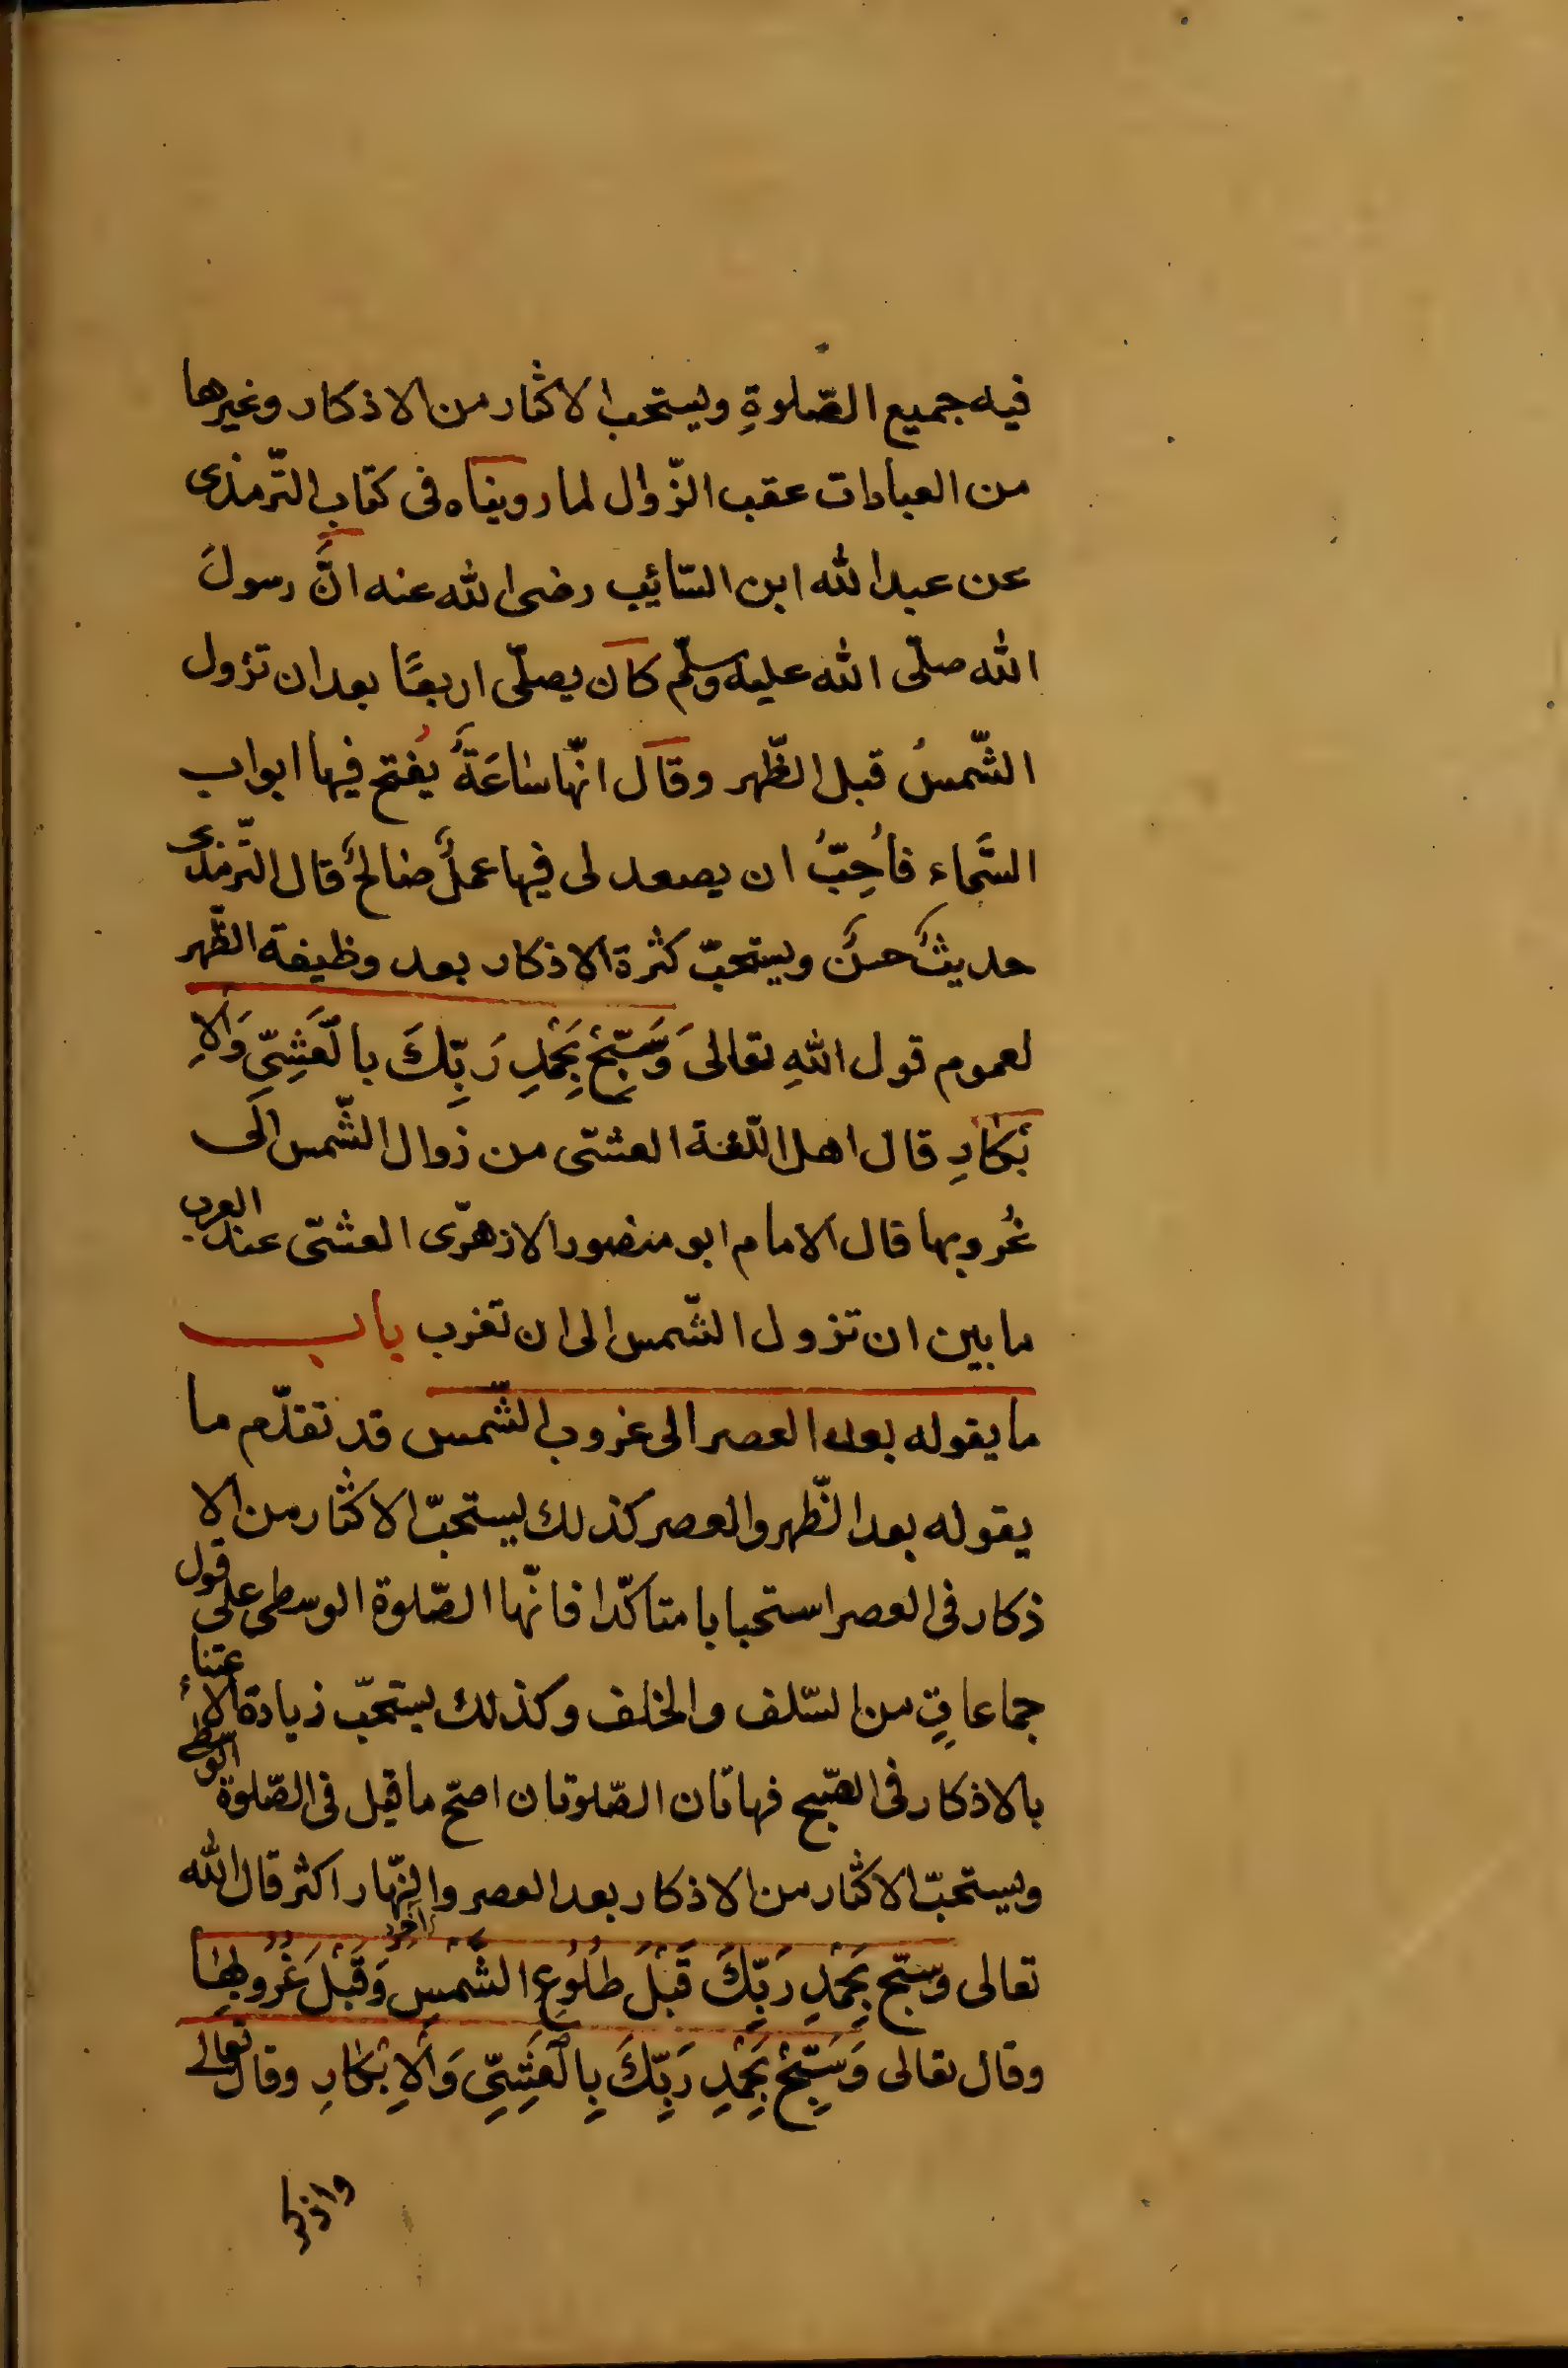 فيه جميع الصّلوةِ ويستحب الاكثار من الاذكار وغيرها
من العبادات عقب الزّوال لما رويناه فى كتاب التّرمذى
عن عبد الله ابن السّائب رضى الله عنه انَّ رسولَ
الله صلّى الله عليه وسلّم كان يصلّى اربعًا بعد ان تزول
الشّمسُ قبل الظّهر وقال انّها ساعَةٌ يُفتح فيها ابواب
السَّماء فاُحِبُّ ان يصعد لى فيها عملٌ صالحٌ قال التّرمذى
حديثٌ حسنٌ ويستحبّ كثرة الاذكار بعد وظيفة الظّهر
لعموم قول اللهِ تعالى وَسَبِّحْ بِحَمْدِ رَبِّكَ بالْعَشِىِّ وَالاِ
بْكَارِ قال اهل اللّغة العشىّ من زوال الشّمس الى
غُروبها قال الامام ابو منصور الازهرّى العشىّ عند العرب
ما بين ان تزول الشّمس الى ان تغرب باب
ما يقوله بعد العصر الى غروب الشّمس قد تقدّم ما
يقوله بعد الظّهر والعصر كذلك يستحبّ الاكثار من الا
ذكار فى العصر استحبابا متاكّدا فانّها الصّلوة الوسطى على قول
جماعاتٍ من السّلف والخلف وكذلك يستحبّ زيادة الاعتناء
بالاذكار فى الصّبح فهاتان الصّلوتان اصحّ ما قيل فى الصّلوة الوسطى
ويستحبّ الاكثار من الاذكار بعد العصر واخر النّهار اكثر قال الله
تعالى وسبّح بِحَمْدِ رَبِّكَ قَبْلَ طُلُوعِ الشَّمْسِ وَقَبْلَ غُرُوبِهَا
وقال تعالى وَسَبِّحْ بِحَمْدِ رَبِّكَ بِالْعَشِىِّ وَالاِبْكَارِ وقال تعالى
واذكر